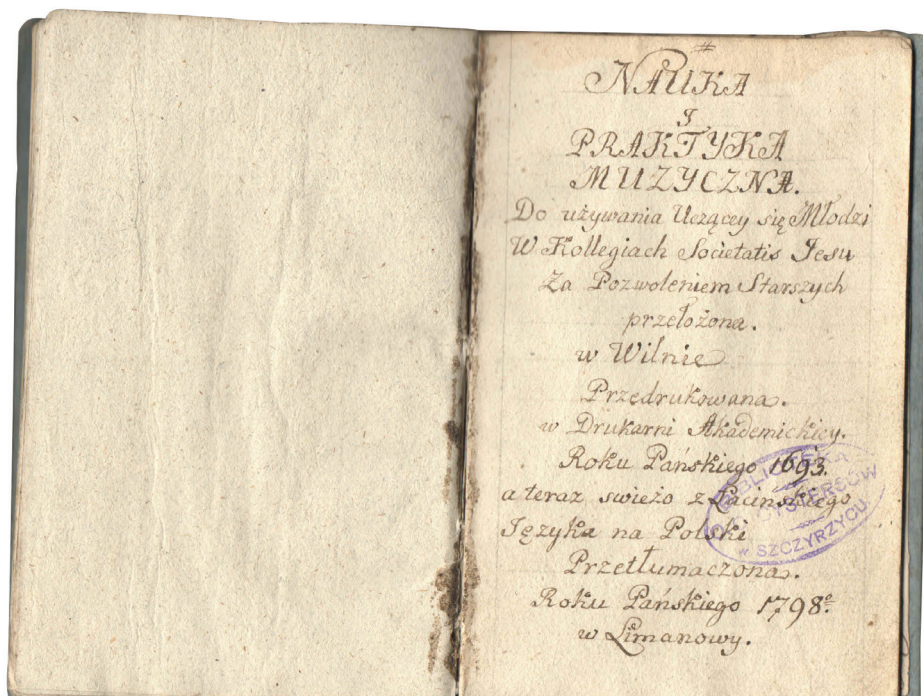 NAUKA
I
PRAKTYKA
MUZYCZNA.
Do używania Uczącey się Młodzi
W Kollegiach Societatis Jesu
Za Pozwoleniem Starszych
przełożona.
w Wilnie
Przedrukowana.
w Drukarni Akademickiey.
Roku Pańskiego 1693.
a teraz swieżo z Łacinskiego
Języka na Polski
Przetłumaczona.
Roku Pańskiego 1798.
w Limanowy.
BIBLIOTEKA
CYSTERSÓW
w SZCZYRZYCU